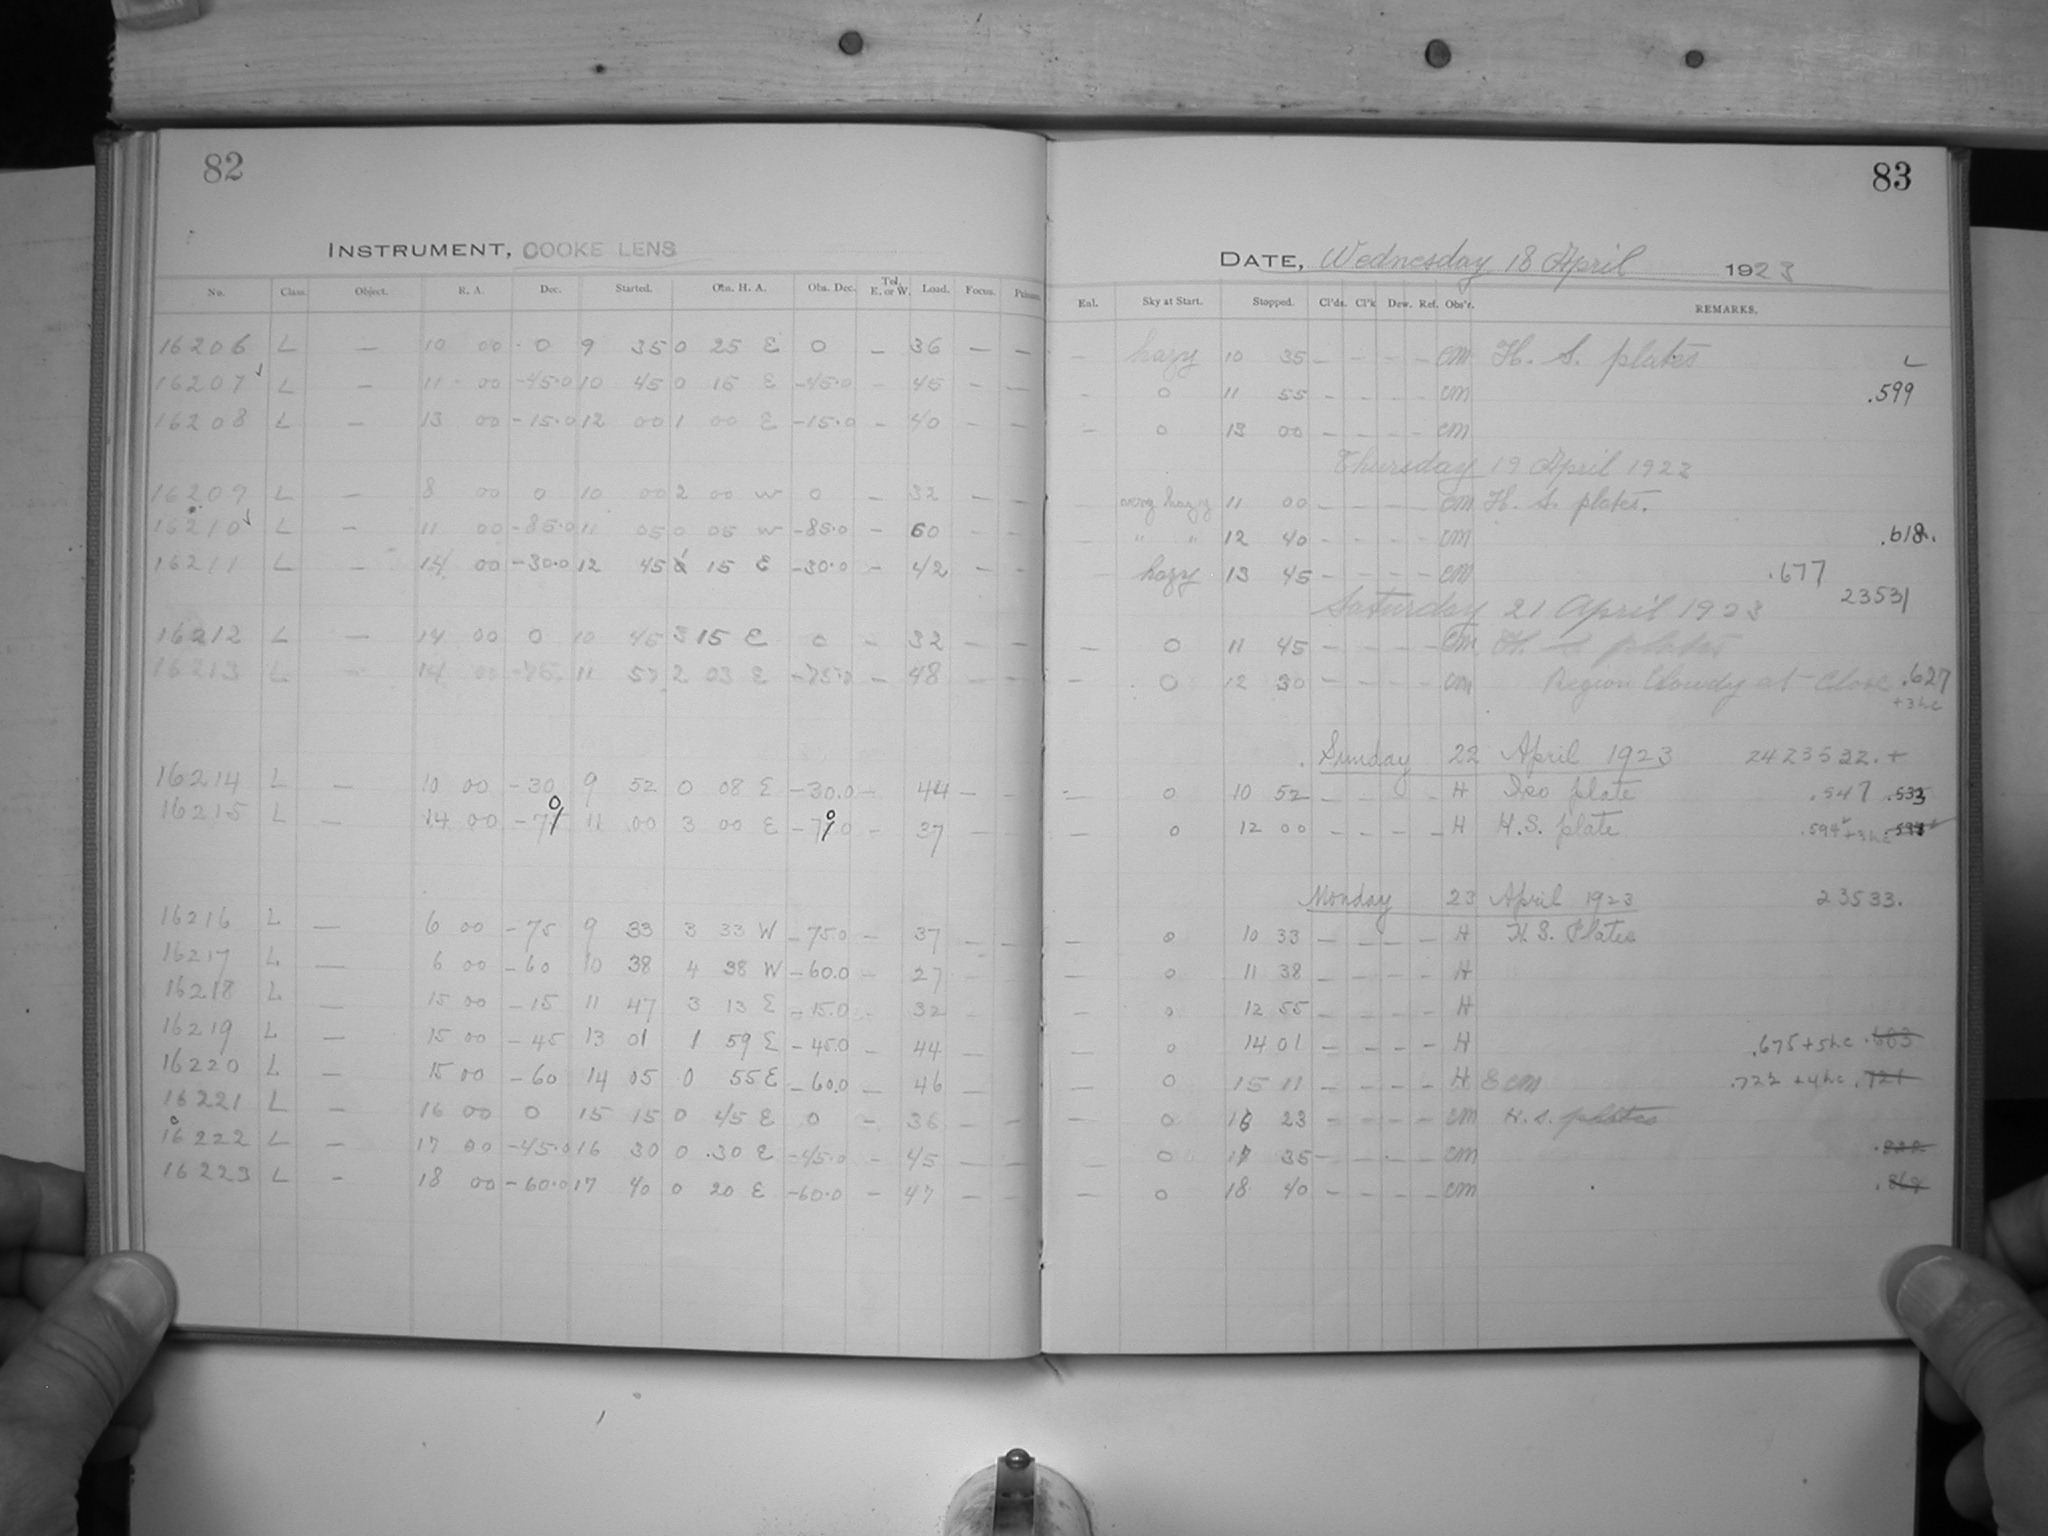 82
INSTRUMENT, COOKE LENS
No. Class. Object. R. A. Dec. Started. Obs. H. A. Obs. Dec. Tel. E. or W. Load. Focus.
16206 L — 10 00 0 9 35 0 25 E 0 — 36 — —
16207 L — 11 00 -45.0 10 45 0 15 E -45.0 — 45 — —
16208 L — 13 00 -15.0 12 00 1 00 E -15.0 — 40 — —
16209 L — 8 00 0 10 00 2 00 W 0 — 32 — —
16210 L — 11 00 -85.0 11 05 0 05 W -85.0 — 60 — —
16211 L — 14 00 -30.0 12 45 1 15 E -30.0 — 42 — —
16212 L — 14 00 0 10 45 3 15 E 0 — 32 — —
16213 L — 14 00 -75. 11 57 2 03 E -75.0 — 48 — —
16214 L — 10 00 -30 9 52 0 08 E -30.0 — 44 — —
16215 L — 14 00 -70 11 00 3 00 E -70 — 37 —
16216 L — 6 00 -75 9 33 3 33 W -75.0 — 37 — —
16217 L — 6 00 -60 10 38 4 38 W -60.0 — 27 — —
16218 L — 15 00 -15 11 47 3 13 E -15.0 — 32 —
16219 L — 15 00 -45 13 01 1 59 E -45.0 — 44 —
16220 L — 15 00 -60 14 05 0 55 E -60.0 — 46 —
16221 L — 16 00 0 15 15 0 45 E 0 — 36 — —
16222 L — 17 00 -45.0 16 30 0 30 E -45.0 — 45 — —
16223 L — 18 00 -60.0 17 40 0 20 E -60.0 — 47 — —
83
DATE, Wednesday 18 April 1923
Sky at Start. Stopped. Cl'ds. Cl'k Dew. Ref. Obs'r. REMARKS.
— hazy 10 35 — — — — CM H. S. plates L
— 0 11 55 — — — — CM .599
— 0 13 00 — — — — CM
Thursday 19 April 1922
— very hazy 11 00 — — — — CM H. S. plates.
— " " 12 40 — — — — CM .618
— hazy 13 45 — — — — CM .677
23531
Saturday 21 April 1923
— 0 11 45 — — — — CM H. S. plates
— 0 12 30 — — — — CM Region Cloudy at Close .627
Sunday 22 April 1923 2423532.+
— 0 10 52 — — — — H Iso plate .547 .533
— 0 12 00 — — — — H H.S. plate .594
Monday 23 April 1923 23533.
— 0 10 33 — — — — H H S. Plates
— 0 11 38 — — — — H
— 0 12 55 — — — — H
— 0 14 01 — — — — H .675
— 0 15 11 — — — — H & CM
— 0 16 23 — — — — CM H.S. plates
— 0 17 35 — — — — CM
— 0 18 40 — — — — CM